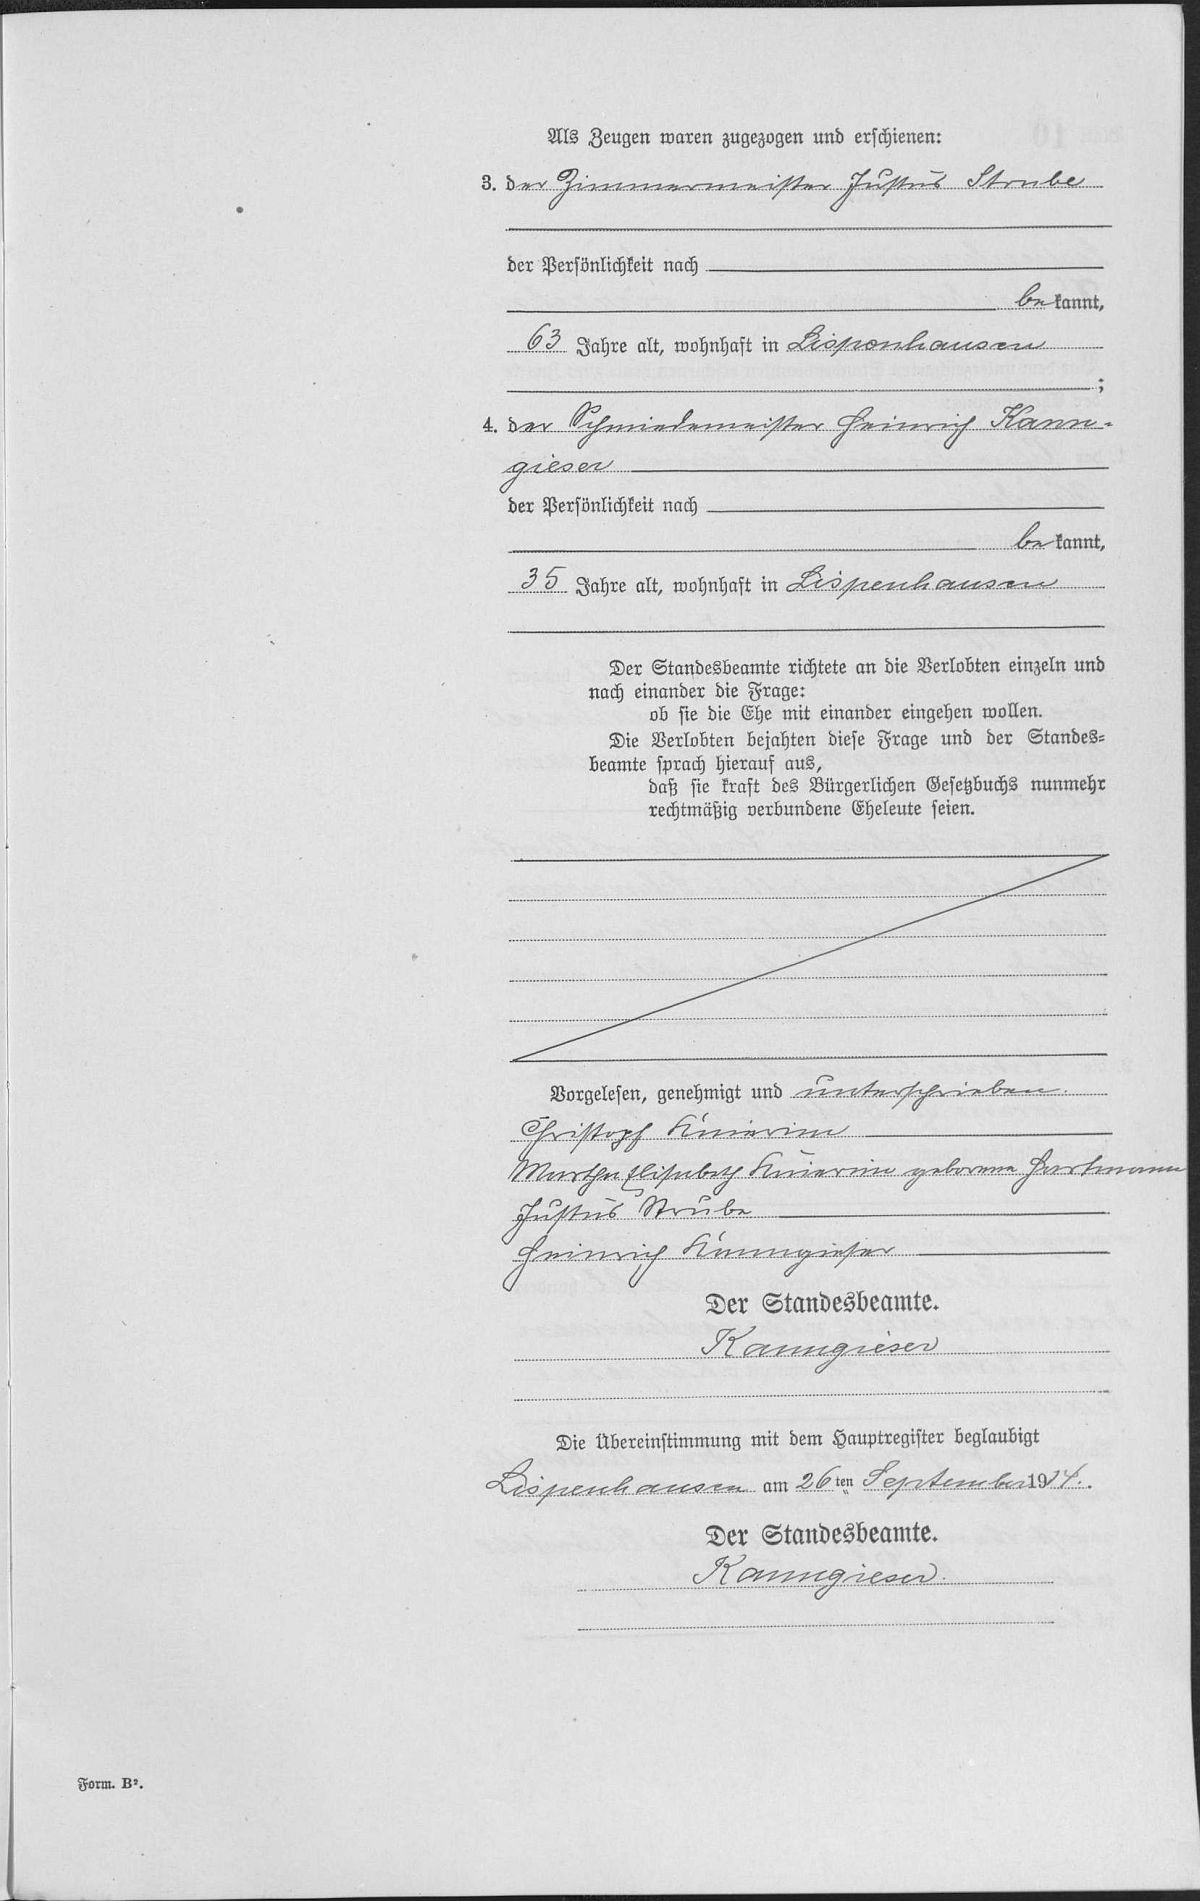 Als Zeugen waren zugezogen und erschienen:
3. der Zimmermeister Justus Strube
der Persönlichkeit nach
be kannt,
63 Jahre alt, wohnhaft in Lispenhausen
;
4. der Schmiedemeister Heinrich Kann-
gieser
der Persönlichkeit nach
be kannt,
35 Jahre alt, wohnhaft in Lispenhausen
Der Standesbeamte richtete an die Verlobten einzeln und
nach einander die Frage:
ob sie die Ehe mit einander eingehen wollen.
Die Verlobten bejahten diese Frage und der Standes=
beamte sprach hierauf aus,
daß sie kraft des Bürgerlichen Gesetzbuchs nunmehr
rechtmäßig verbundene Eheleute seien.
Vorgelesen, genehmigt und unterschrieben.
Christoph Knierim
Martha Elisabeth Knierim geborene Hartmann
Justus Strube
Heinrich Kanngieser
Der Standesbeamte.
Kanngieser
Die Übereinstimmung mit dem Hauptregister beglaubigt
Lispenhausen am 26 ten September 1914.
Der Standesbeamte.
Kanngieser.
Form. B².